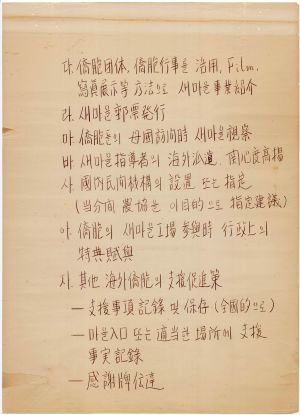 다. 僑胞团体, 僑胞行事를 活用, Film,
寫眞展示等 方法으로 새마을事業紹介
라. 새마을郵票発行
마. 僑胞들의 母國訪問時 새마을視察
바. 새마을指導者의 海外派遣, 関心度高揚
사. 國內民间機構의 設置 또는 指定
(当分间 農協을 이目的으로 指定建議)
아. 僑胞의 새마을工場 参與時 行政上의
特典賦與
자. 其他 海外僑胞의 支援促進策
— 支援事項記錄 및 保存 (全國的으로)
— 마을入口 또는 適当한 場所에 支援
事実記錄
— 感謝牌伝達